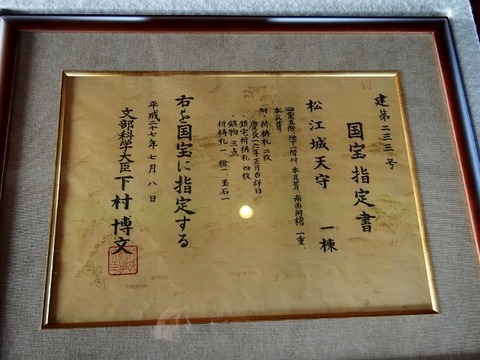 建第二三三号
国宝指定書
松江城天守 一棟
四重五階、地下一階付、本瓦葺、南面附櫓 一重、
本瓦葺
附・祈祷札 二枚
慶長十六年正月吉祥日
鎮宅祈祷札 四枚
鎮物 三点
祈祷札一、槍一、玉石一
右を国宝に指定する
平成二十七年七月八日
文部科学大臣 下村博文